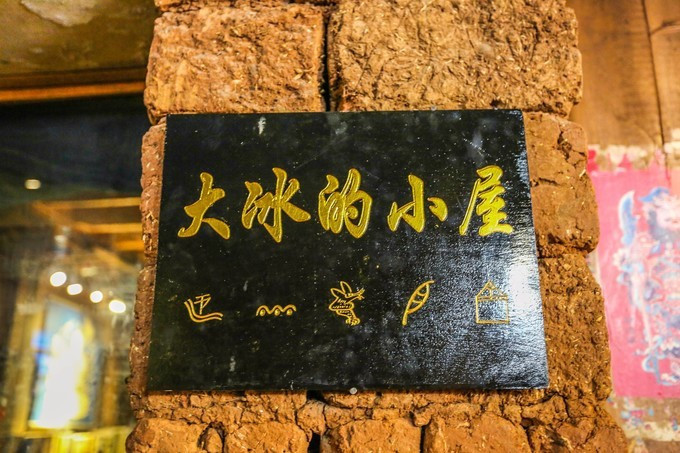 大冰的小屋